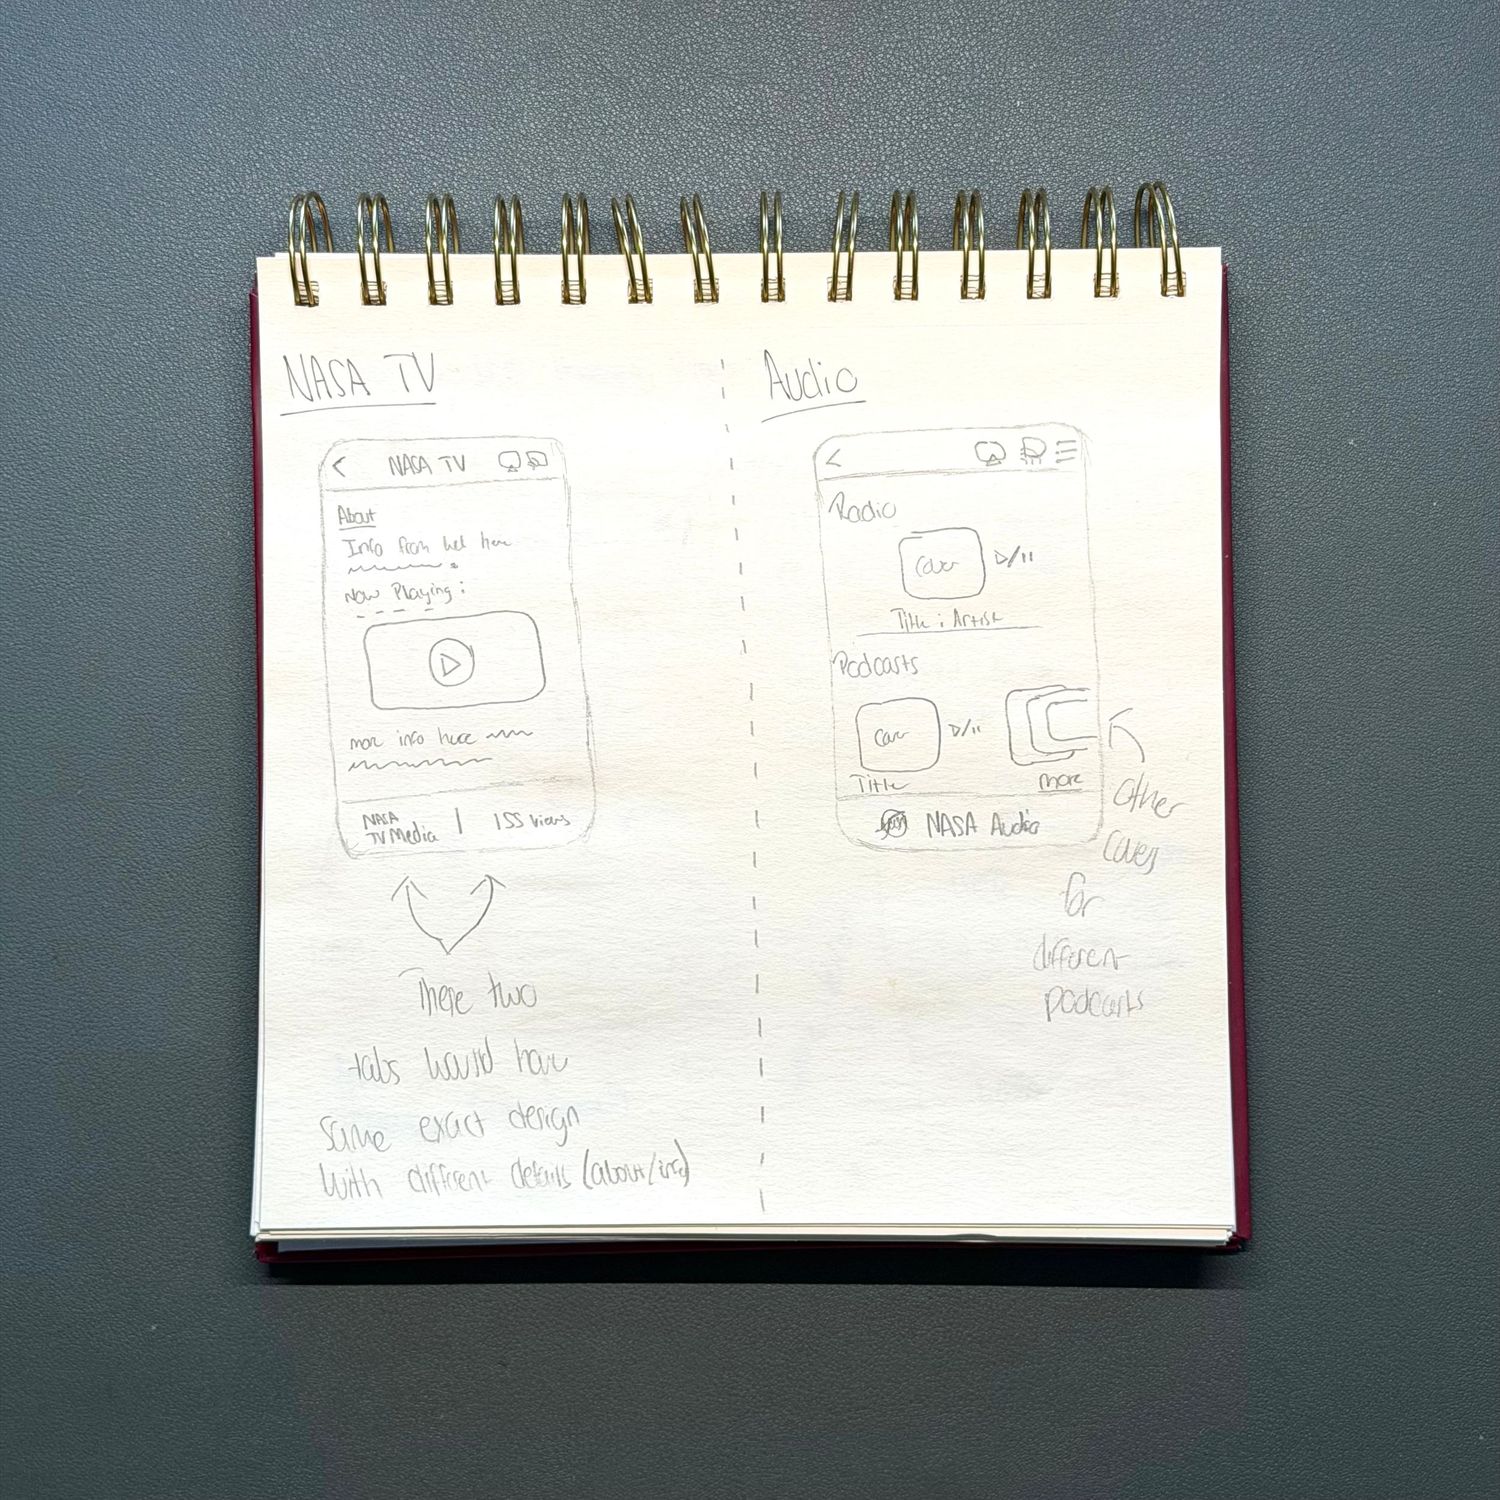 NASA TV
NASA TV
About
Info from
here
Now Playing:
more info here
NASA
TV Media | 155 views
There two
tabs would have
same exact design
with different details (about/info)
Audio
Radio
Cover
Title : Artist
Podcasts
Cover
Title
more
NASA Audio
other
covers
for
different
podcasts